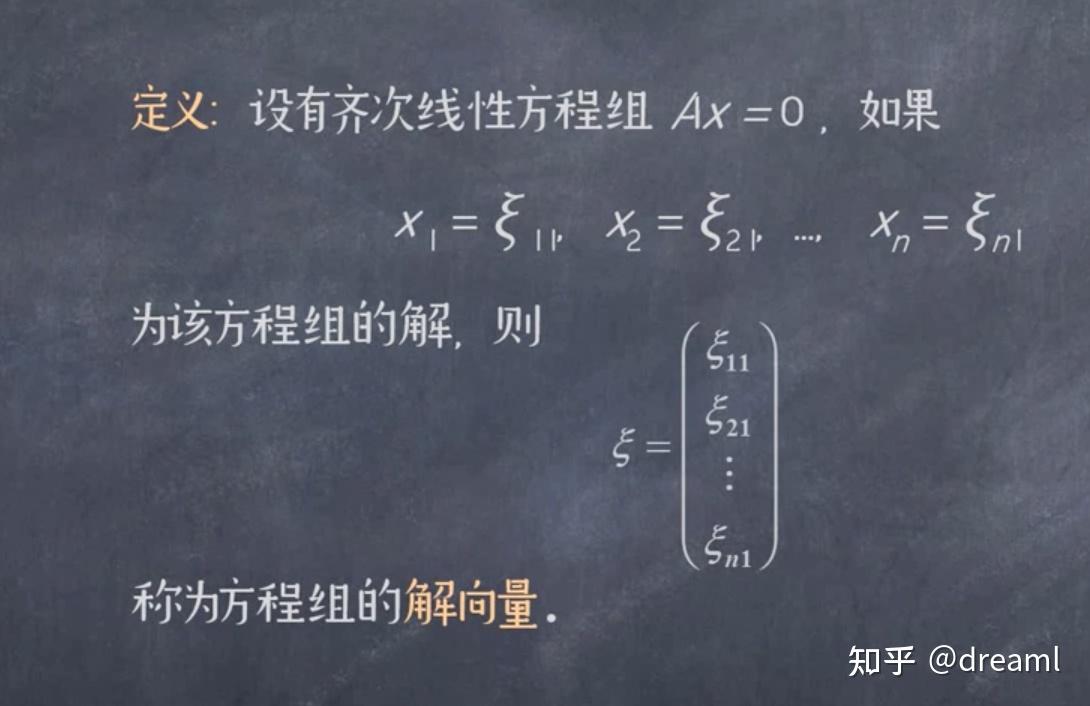 定义: 设有齐次线性方程组 Ax = 0 , 如果
x₁ = ξ₁₁, x₂ = ξ₂₁, …, xₙ = ξₙ₁
为该方程组的解, 则
ξ = (ξ₁₁ ξ₂₁ ⋮ ξₙ₁)
称为方程组的解向量.
知乎 @dreaml